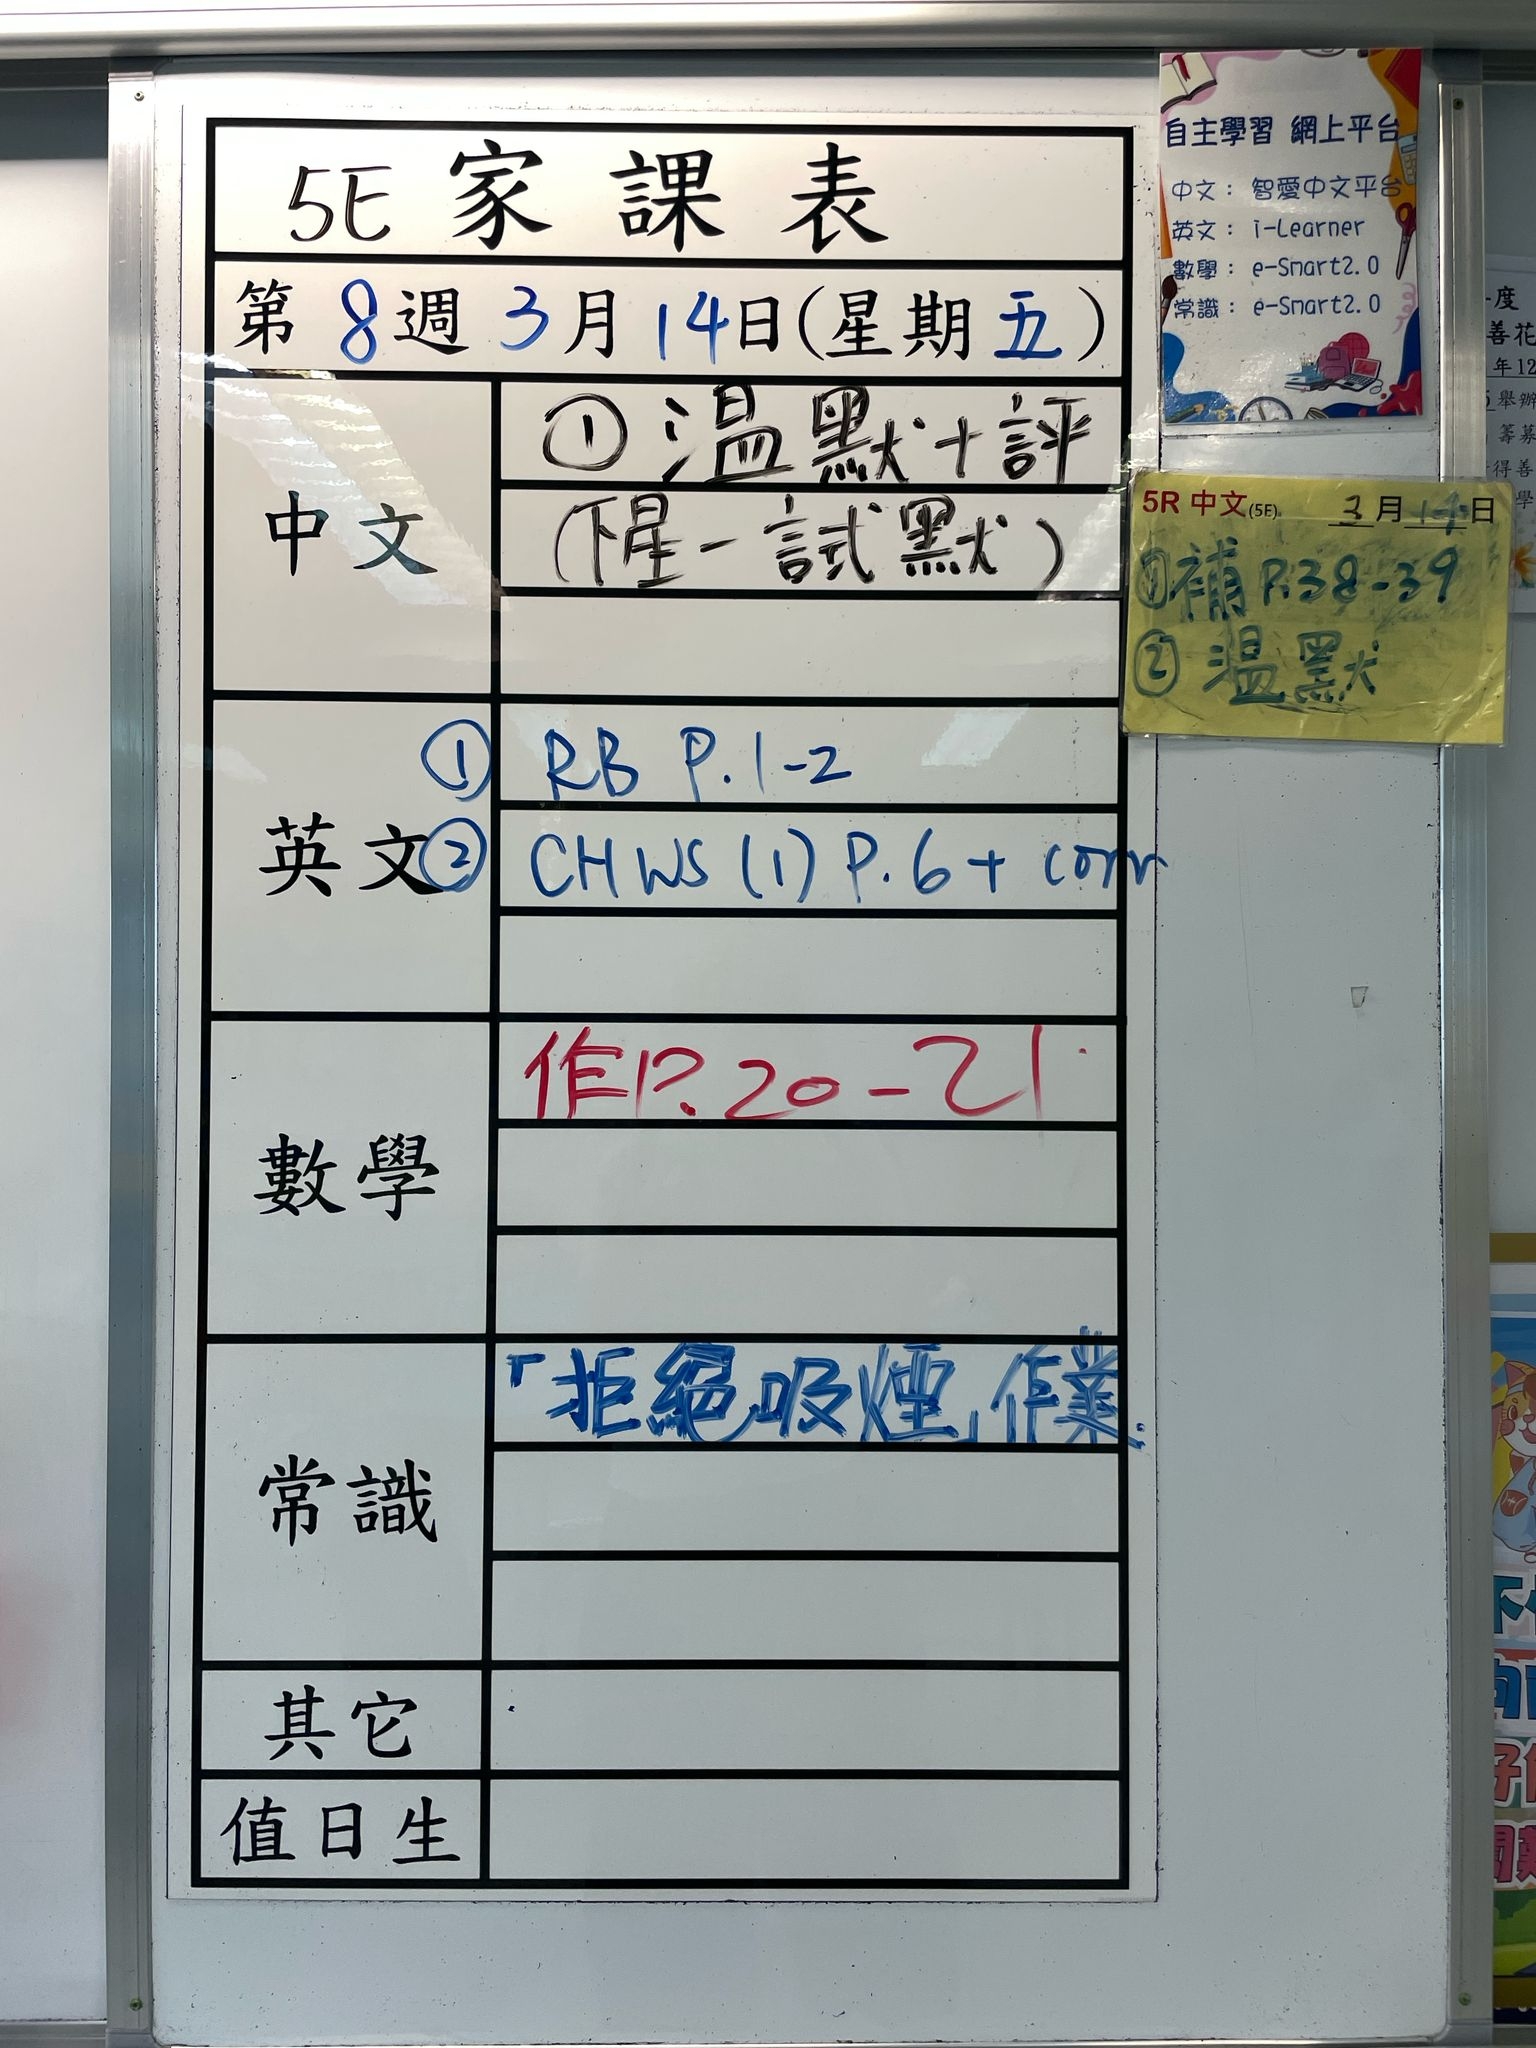 5E 家課表
第 8 週 3 月 14 日(星期五)
中文
① 温默+評
(下星一試默)
英文
① RB P.1-2
② CHWS (1) P.6 + corr
數學
作P.20-21
常識
「拒絕吸煙」作業.
其它
值日生
自主學習 網上平台
中文： 智愛中文平台
英文： i-Learner
數學： e-Smart2.0
常識： e-Smart2.0
5R 中文(5E) 3月14日
①補 P.38-39
② 温默
度
善花
年12
舉辦
籌募
得善
學